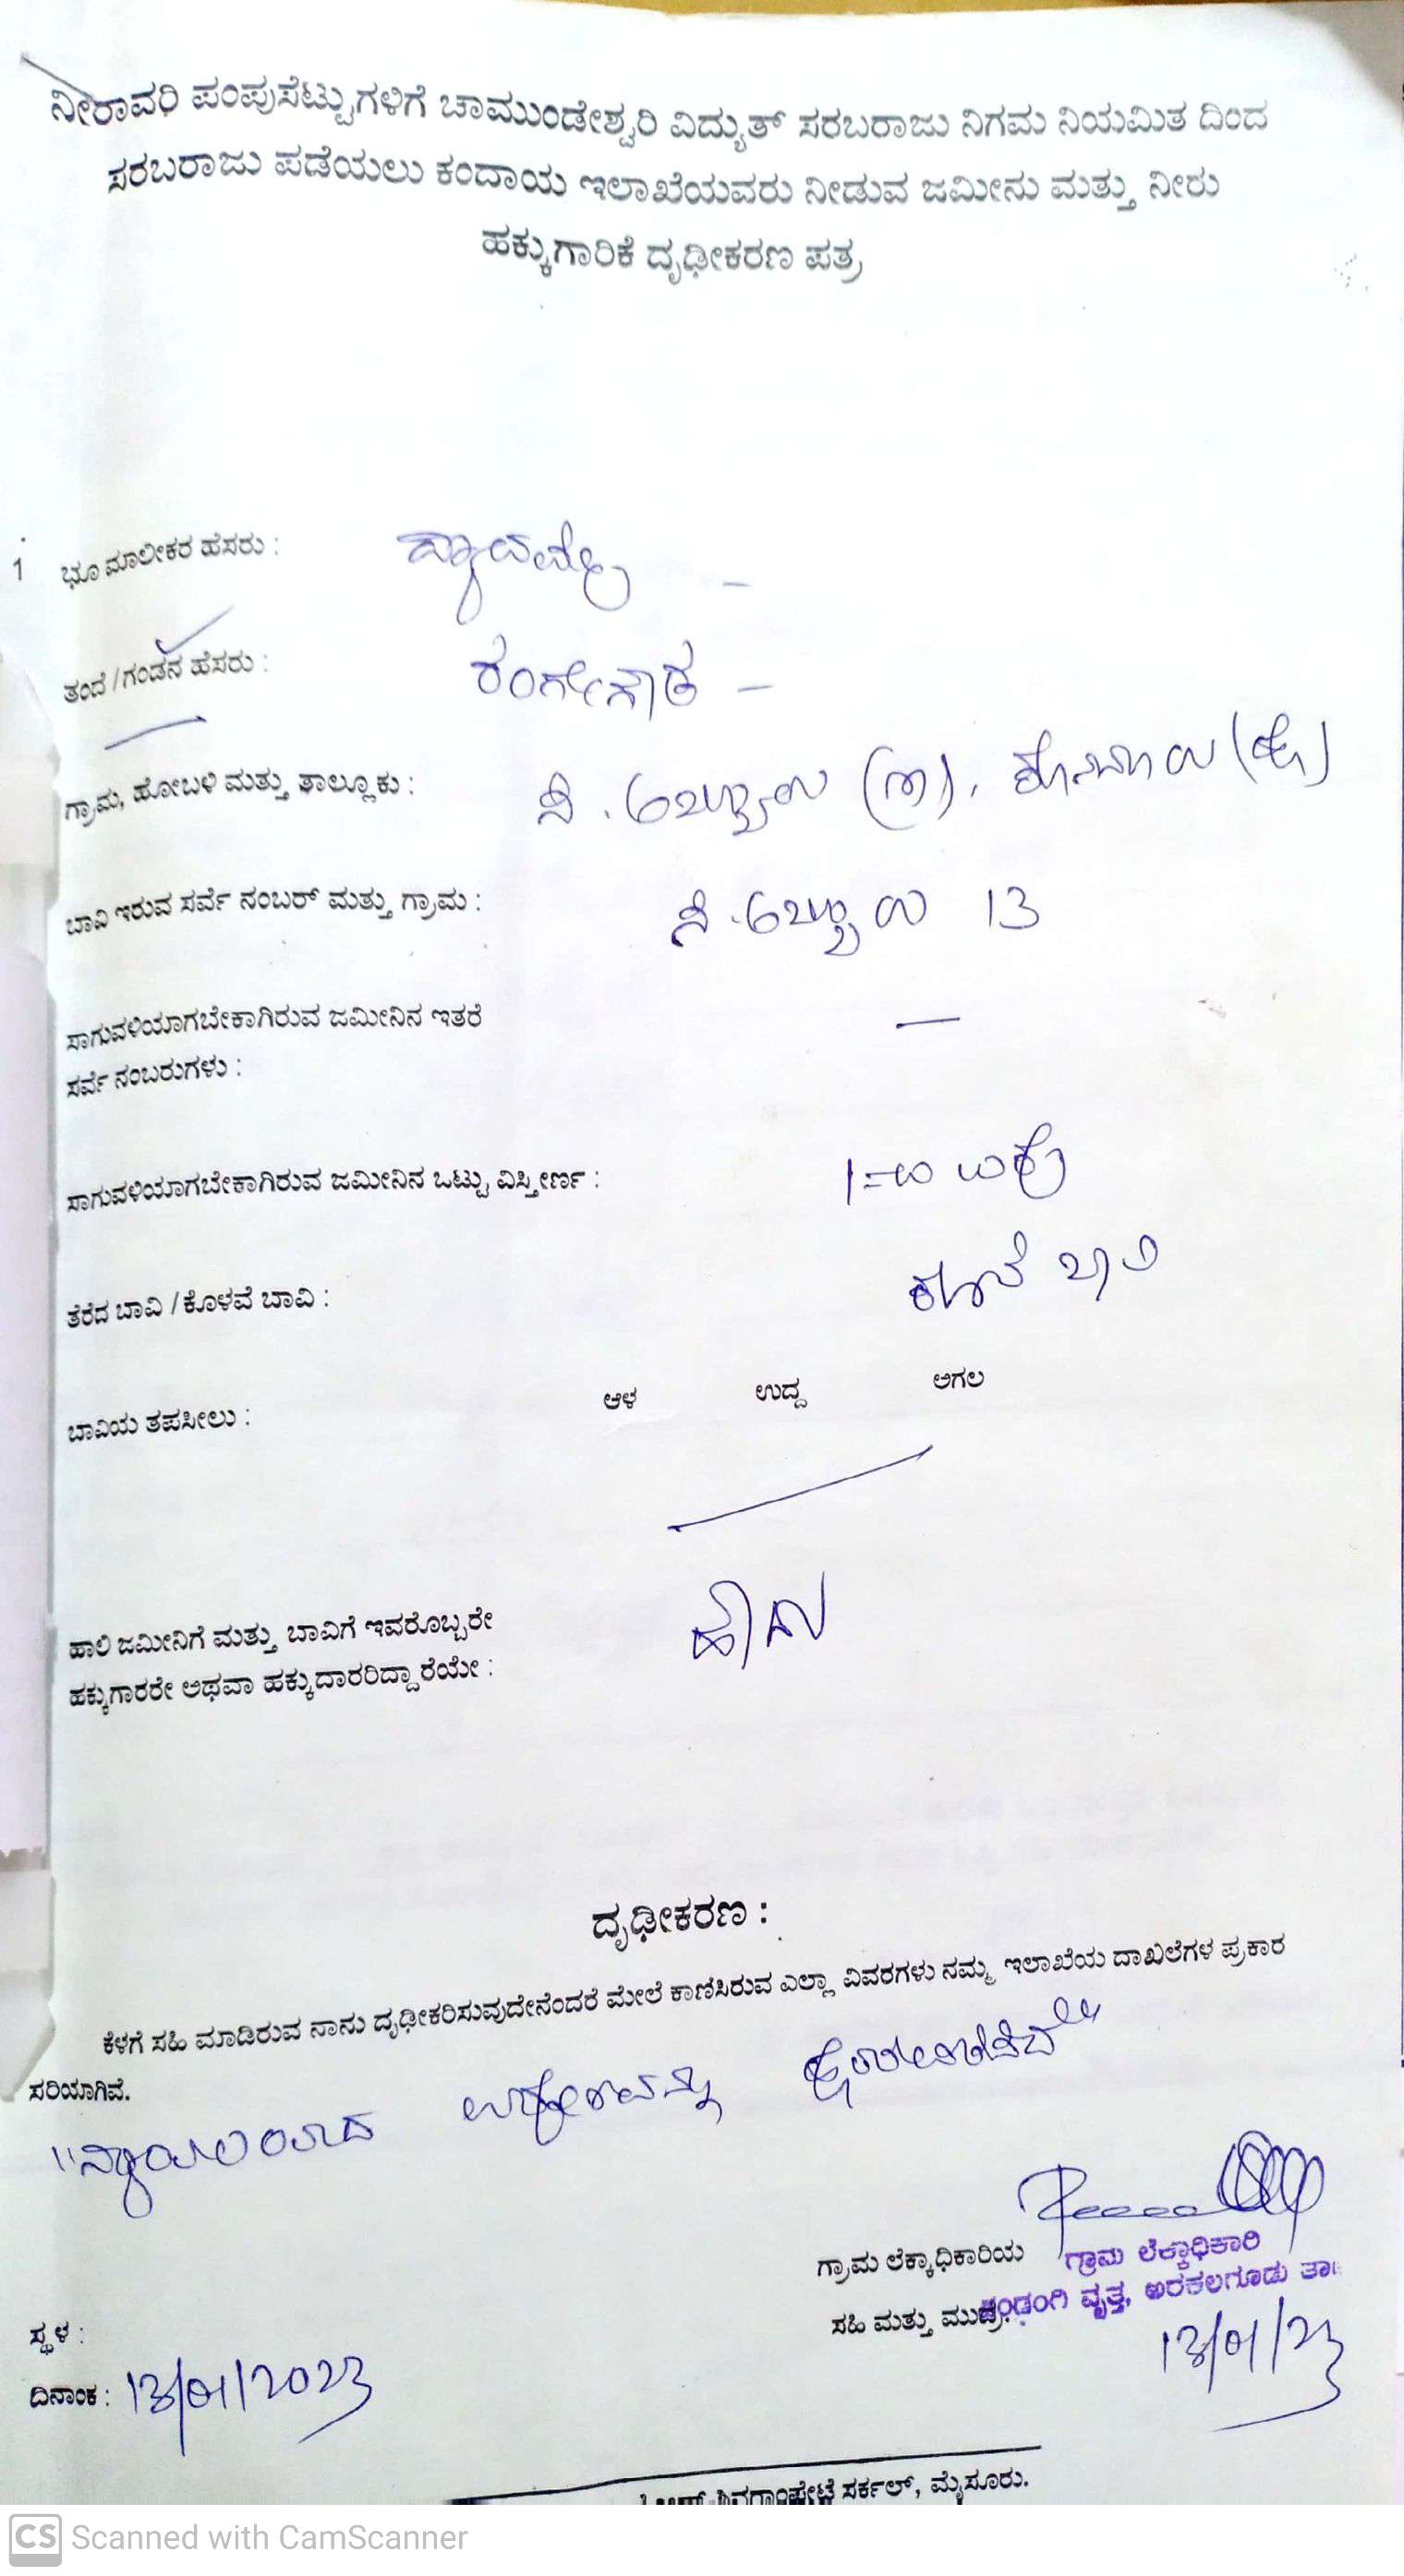 ನೀರಾವರಿ ಪಂಪುಸೆಟ್ಟುಗಳಿಗೆ ಚಾಮುಂಡೇಶ್ವರಿ ವಿದ್ಯುತ್ ಸರಬರಾಜು ನಿಗಮ ನಿಯಮಿತ ದಿಂದ
ಸರಬರಾಜು ಪಡೆಯಲು ಕಂದಾಯ ಇಲಾಖೆಯವರು ನೀಡುವ ಜಮೀನು ಮತ್ತು ನೀರು
ಹಕ್ಕುಗಾರಿಕೆ ದೃಢೀಕರಣ ಪತ್ರ
1 ಭೂ ಮಾಲೀಕರ ಹೆಸರು :
ತಂದೆ/ಗಂಡನ ಹೆಸರು : ರಂಗೇಗೌಡ –
ಗ್ರಾಮ, ಹೋಬಳಿ ಮತ್ತು ತಾಲ್ಲೂಕು :
ಬಾವಿ ಇರುವ ಸರ್ವೆ ನಂಬರ್ ಮತ್ತು ಗ್ರಾಮ : 13
ಸಾಗುವಳಿಯಾಗಬೇಕಾಗಿರುವ ಜಮೀನಿನ ಇತರೆ —
ಸರ್ವೆ ನಂಬರುಗಳು :
ಸಾಗುವಳಿಯಾಗಬೇಕಾಗಿರುವ ಜಮೀನಿನ ಒಟ್ಟು ವಿಸ್ತೀರ್ಣ : ಎಕ್ರೆ
ತೆರೆದ ಬಾವಿ / ಕೊಳವೆ ಬಾವಿ : ಕೊಳವೆ ಬಾವಿ
ಬಾವಿಯ ತಪಸೀಲು : ಆಳ ಉದ್ದ ಅಗಲ
ಹಾಲಿ ಜಮೀನಿಗೆ ಮತ್ತು ಬಾವಿಗೆ ಇವರೊಬ್ಬರೇ ಹೌದು
ಹಕ್ಕುಗಾರರೇ ಅಥವಾ ಹಕ್ಕುದಾರರಿದ್ದಾರೆಯೇ :
ದೃಢೀಕರಣ :
ಕೆಳಗೆ ಸಹಿ ಮಾಡಿರುವ ನಾನು ದೃಢೀಕರಿಸುವುದೇನೆಂದರೆ ಮೇಲೆ ಕಾಣಿಸಿರುವ ಎಲ್ಲಾ ವಿವರಗಳು ನಮ್ಮ ಇಲಾಖೆಯ ದಾಖಲೆಗಳ ಪ್ರಕಾರ
ಸರಿಯಾಗಿವೆ.
ಗ್ರಾಮ ಲೆಕ್ಕಾಧಿಕಾರಿಯ ಗ್ರಾಮ ಲೆಕ್ಕಾಧಿಕಾರಿ
ಸಹಿ ಮತ್ತು ಮುದ್ರೆ ವೃತ್ತ, ಅರಕಲಗೂಡು ತಾ
ಸ್ಥಳ : 13/01/23
ದಿನಾಂಕ : 13/01/2023
ಸರ್ಕಲ್, ಮೈಸೂರು.
CS Scanned with CamScanner